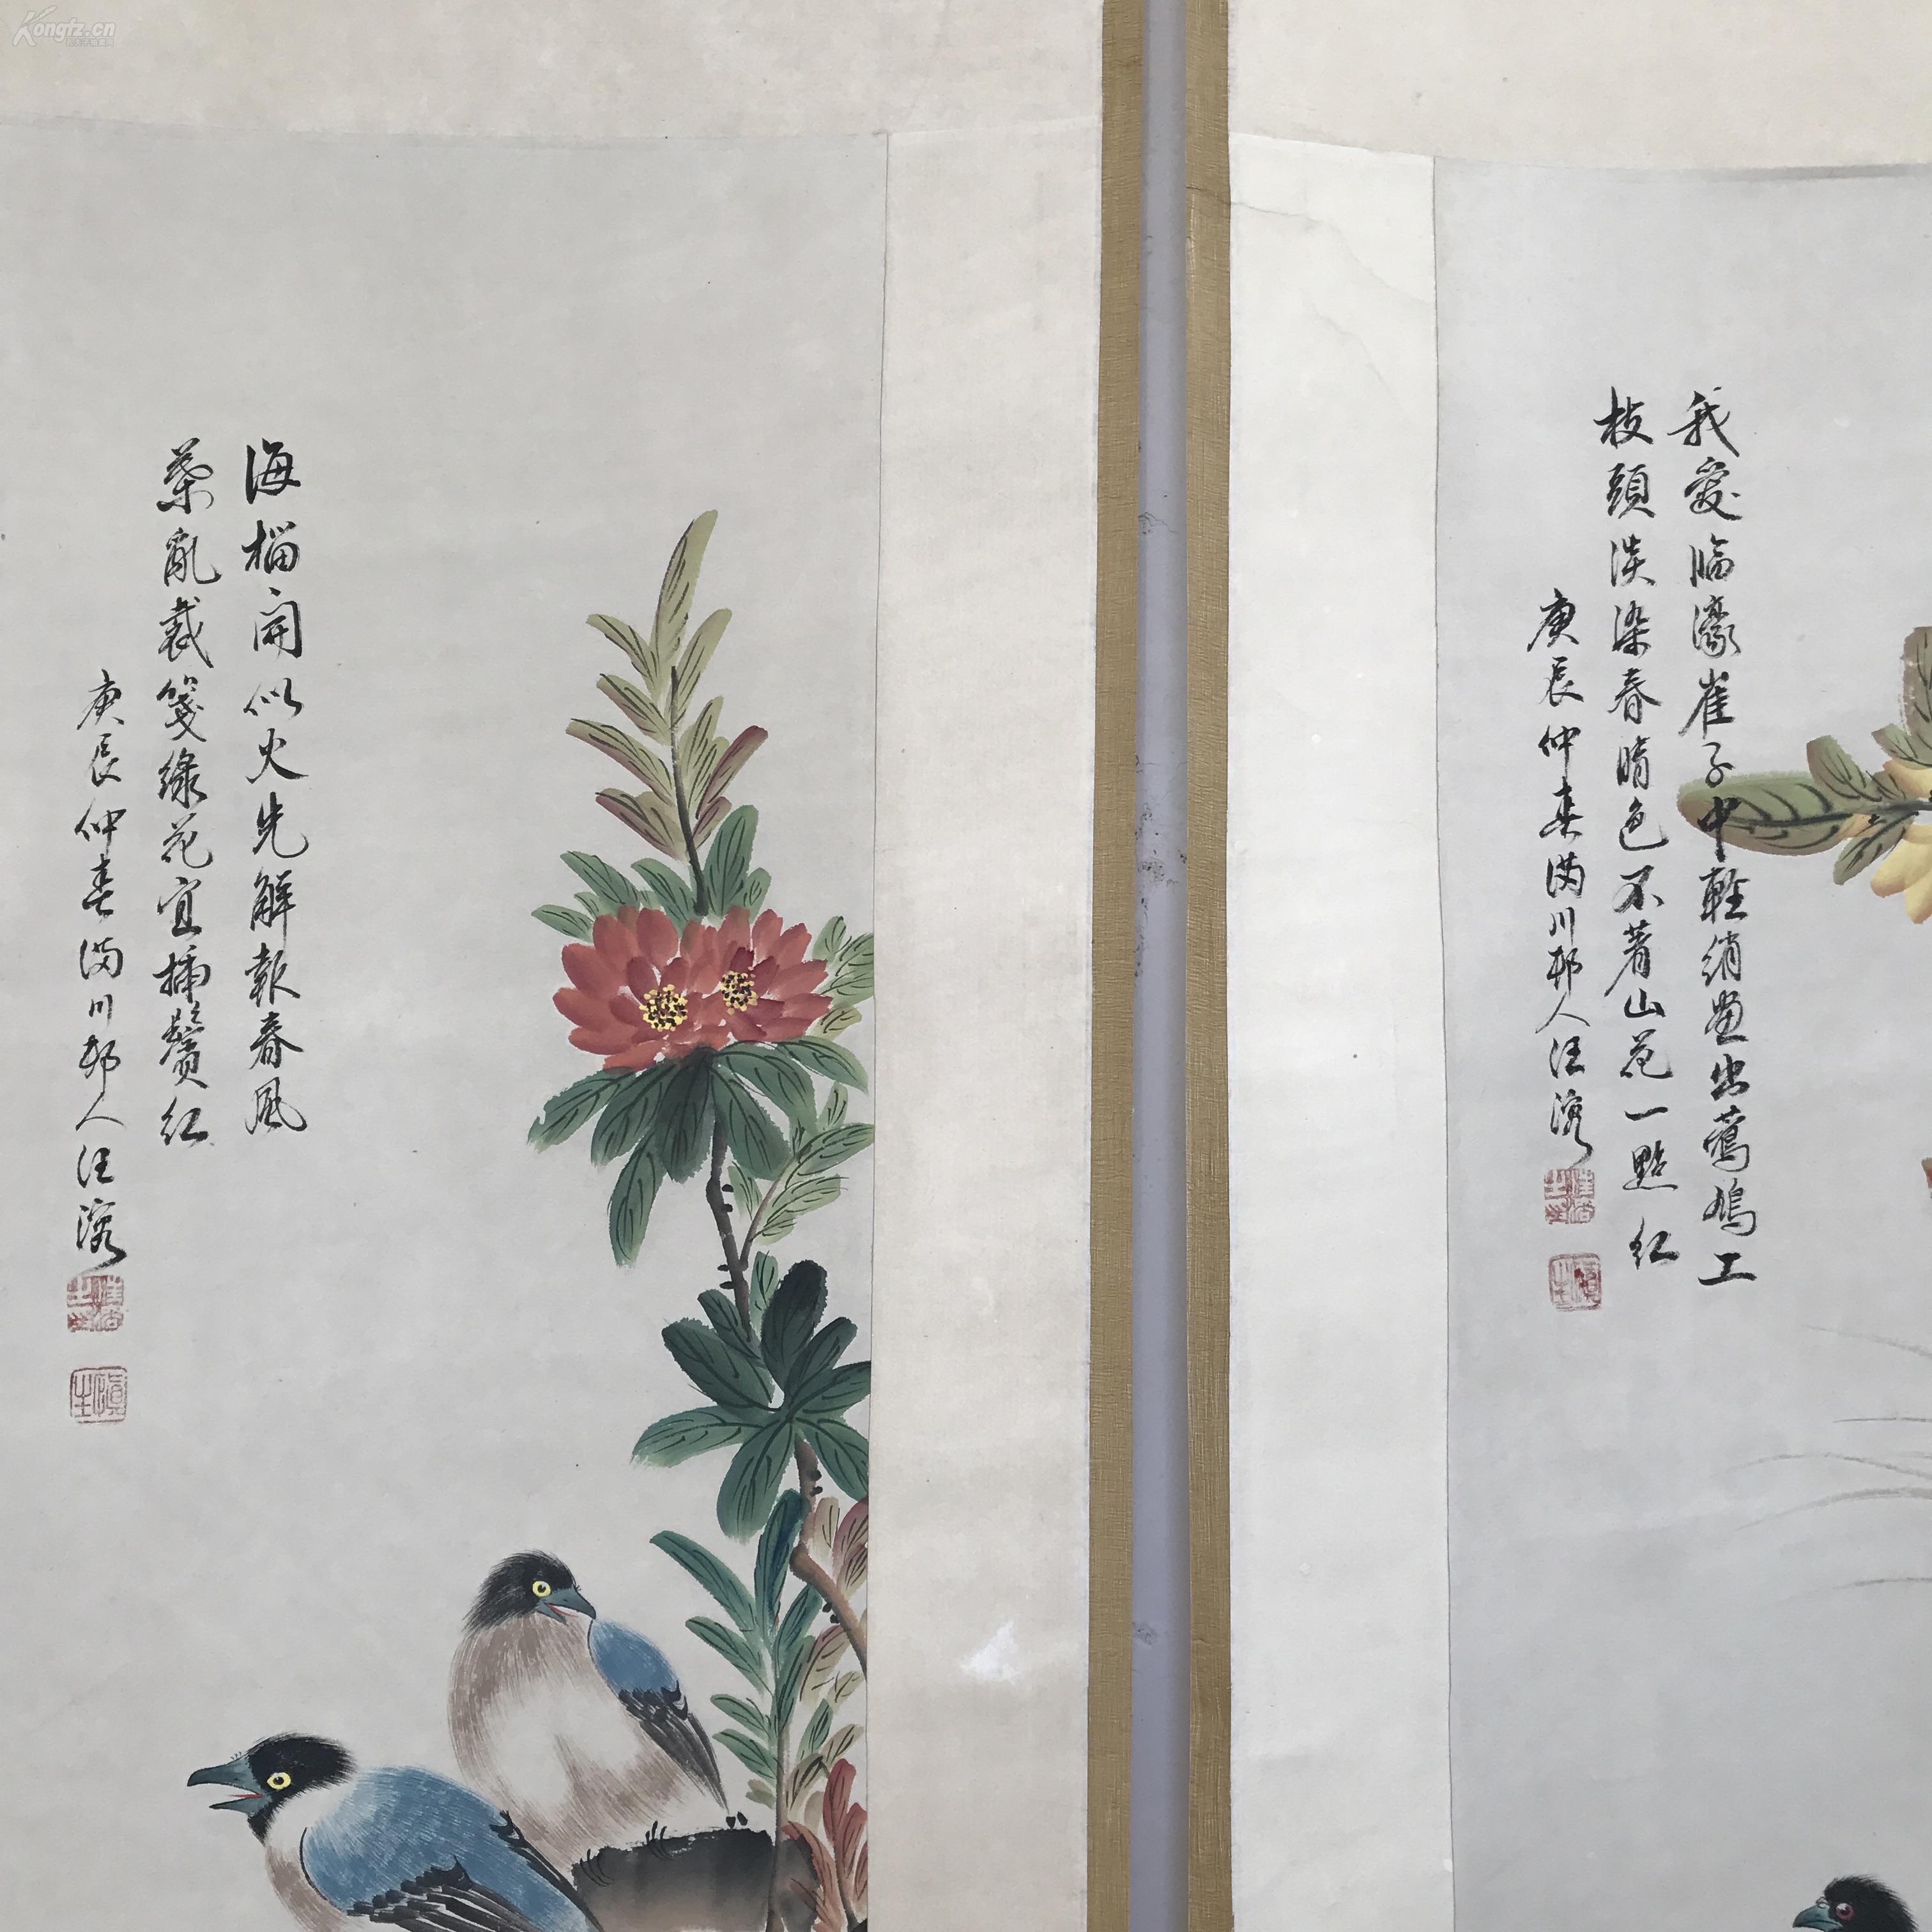 Kongfz.cn
我愛臨濠崔子中輕綃畫出鶯鳩工
枝頭淡染春晴色不著山花一點紅
庚辰仲春滿川邨人汪溶
海榴開似火先解報春風
葉亂裁箋綠花宜插鬢紅
庚辰仲春滿川邨人汪溶